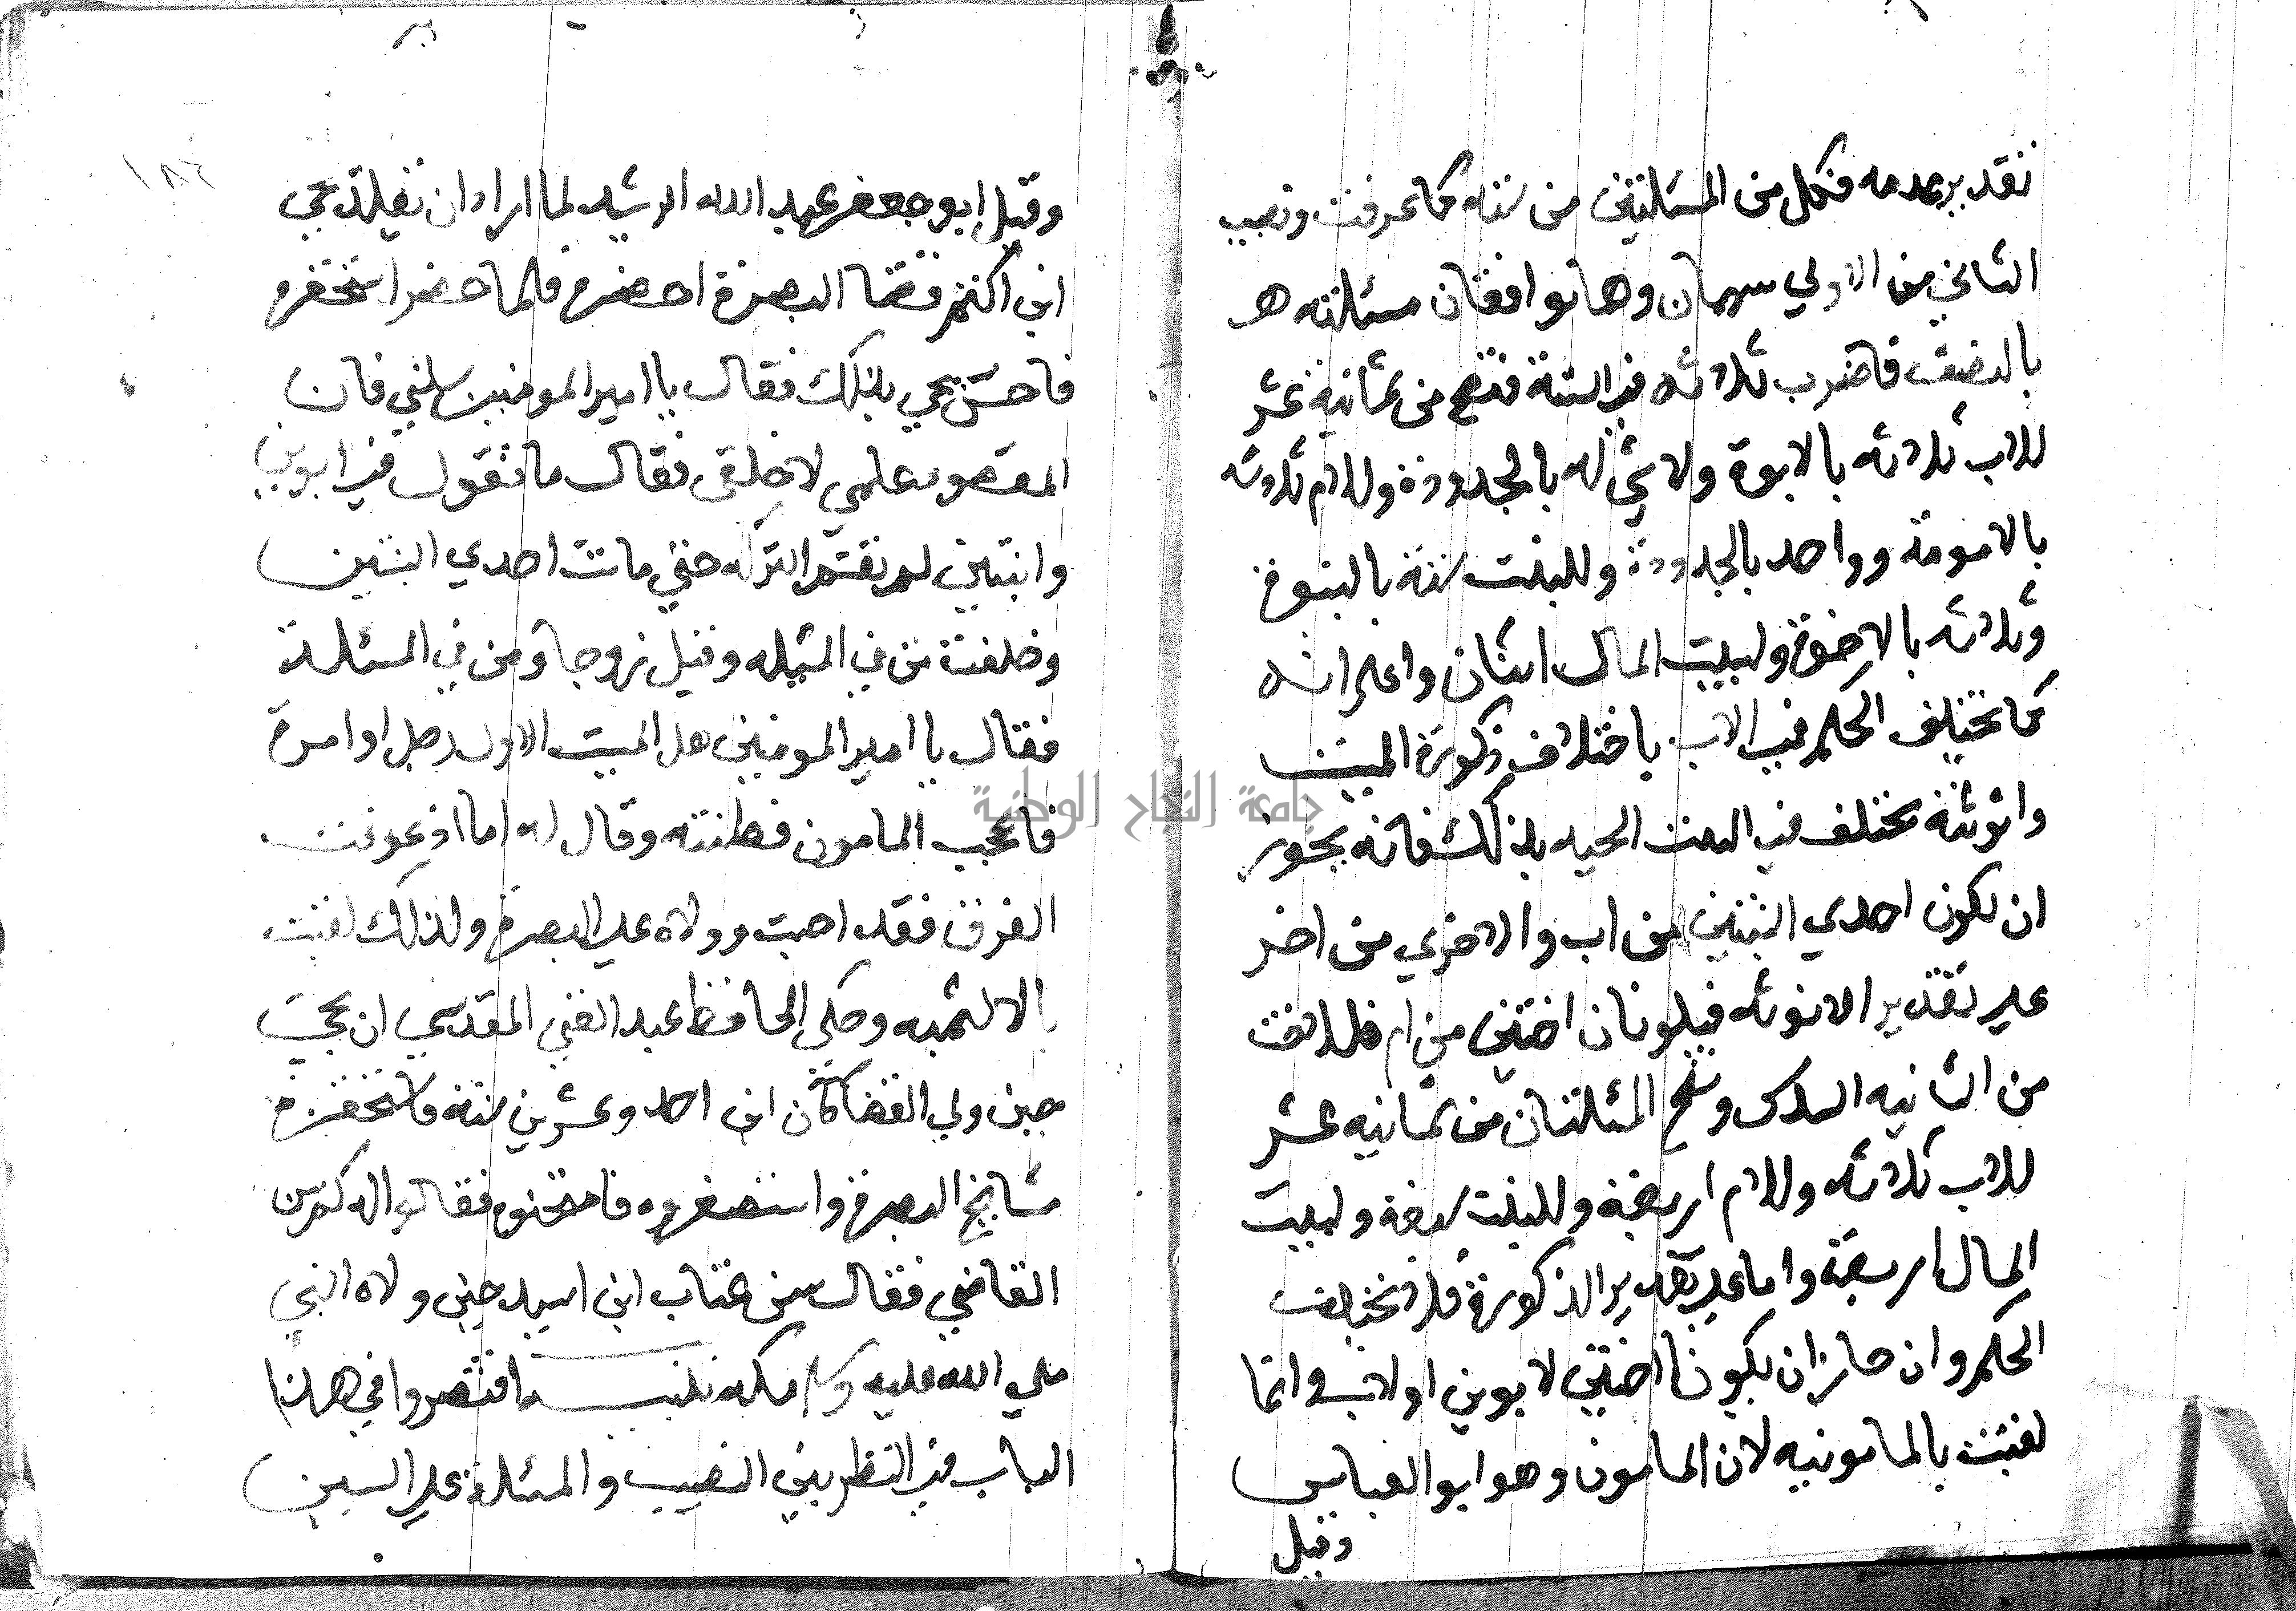 تقدير عدمه فكل من المسئلتين من سته كما عرفت ونصيب
الثاني من الاولي سهمان وهما توافقان مسئلته هـ
بالنصف فاضرب ثلاثه في الستة فتصح من ثمانية عشر
للاب ثلاثه بالابوة ولا شي له بالجدودة وللام ثلاثه
بالامومة وواحد بالجدودة وللبنت ستة بالبنوة
وثلاثه بالاخوة ولبيت المال اثنان واعلم انه
كما يختلف الحكم في الاب باختلاف ذكورة الميت
وانوثته يختلف في البنت الحيه بذلك فانه يجوز
ان تكون احدي البنتين من اب والاخري من اخر
علي تقدير الانوثه فيكونان اختين من ام فللاخت
من الثانيه السدس وتصح المسئلتان من ثمانيه عشر
للاب ثلاثه وللام اربعة وللبنت سبعة ولبيت
المال اربعة واما علي تقدير الذكورة فلا يختلف
الحكم وان جاز ان يكونا اختين لابوين او لاب وانما
لقبت بالمامونيه لان المامون وهو ابو العباس
وقيل
١٨٦
وقيل ابو جعفر عبد الله الرشيد لما اراد ان يقلد يحي
ابن اكثم قضا البصرة احضره فلما حضر استحقره
فاحس يحي بذلك فقال يا امير المومنين سلني فان
المقصود علمي لا خلقي فقال ما تقول في ابوين
وابنتين لم تقتسم التركه حتي ماتت احدي البنتين
وخلفت من في المسئله وقيل زوجا ومن في المسئلة
فقال يا امير المومنين هل الميت الاول رجل او امرة
فاعجب المامون فطنته وقال له اما اذ عرفت
الفرق فقد اصبت وولاه علي البصرة ولذلك لقبت
وحكي الحافظ عبد الغني المقدسي ان يحي
حين ولي القضا كان ابن احد وعشرين سنة فاستحقره
مشايخ البصرة واستصغروه فامتحنوه فقالوا له كم سن
القاضي فقال سن عتاب ابن اسيد حين ولاه النبي
صلي الله عليه وسلم مكه تنبيه ما اقتصروا في هذا
الباب في النظر بين النصيب والمسئلة علي السبين
جامعة النجاح الوطنية